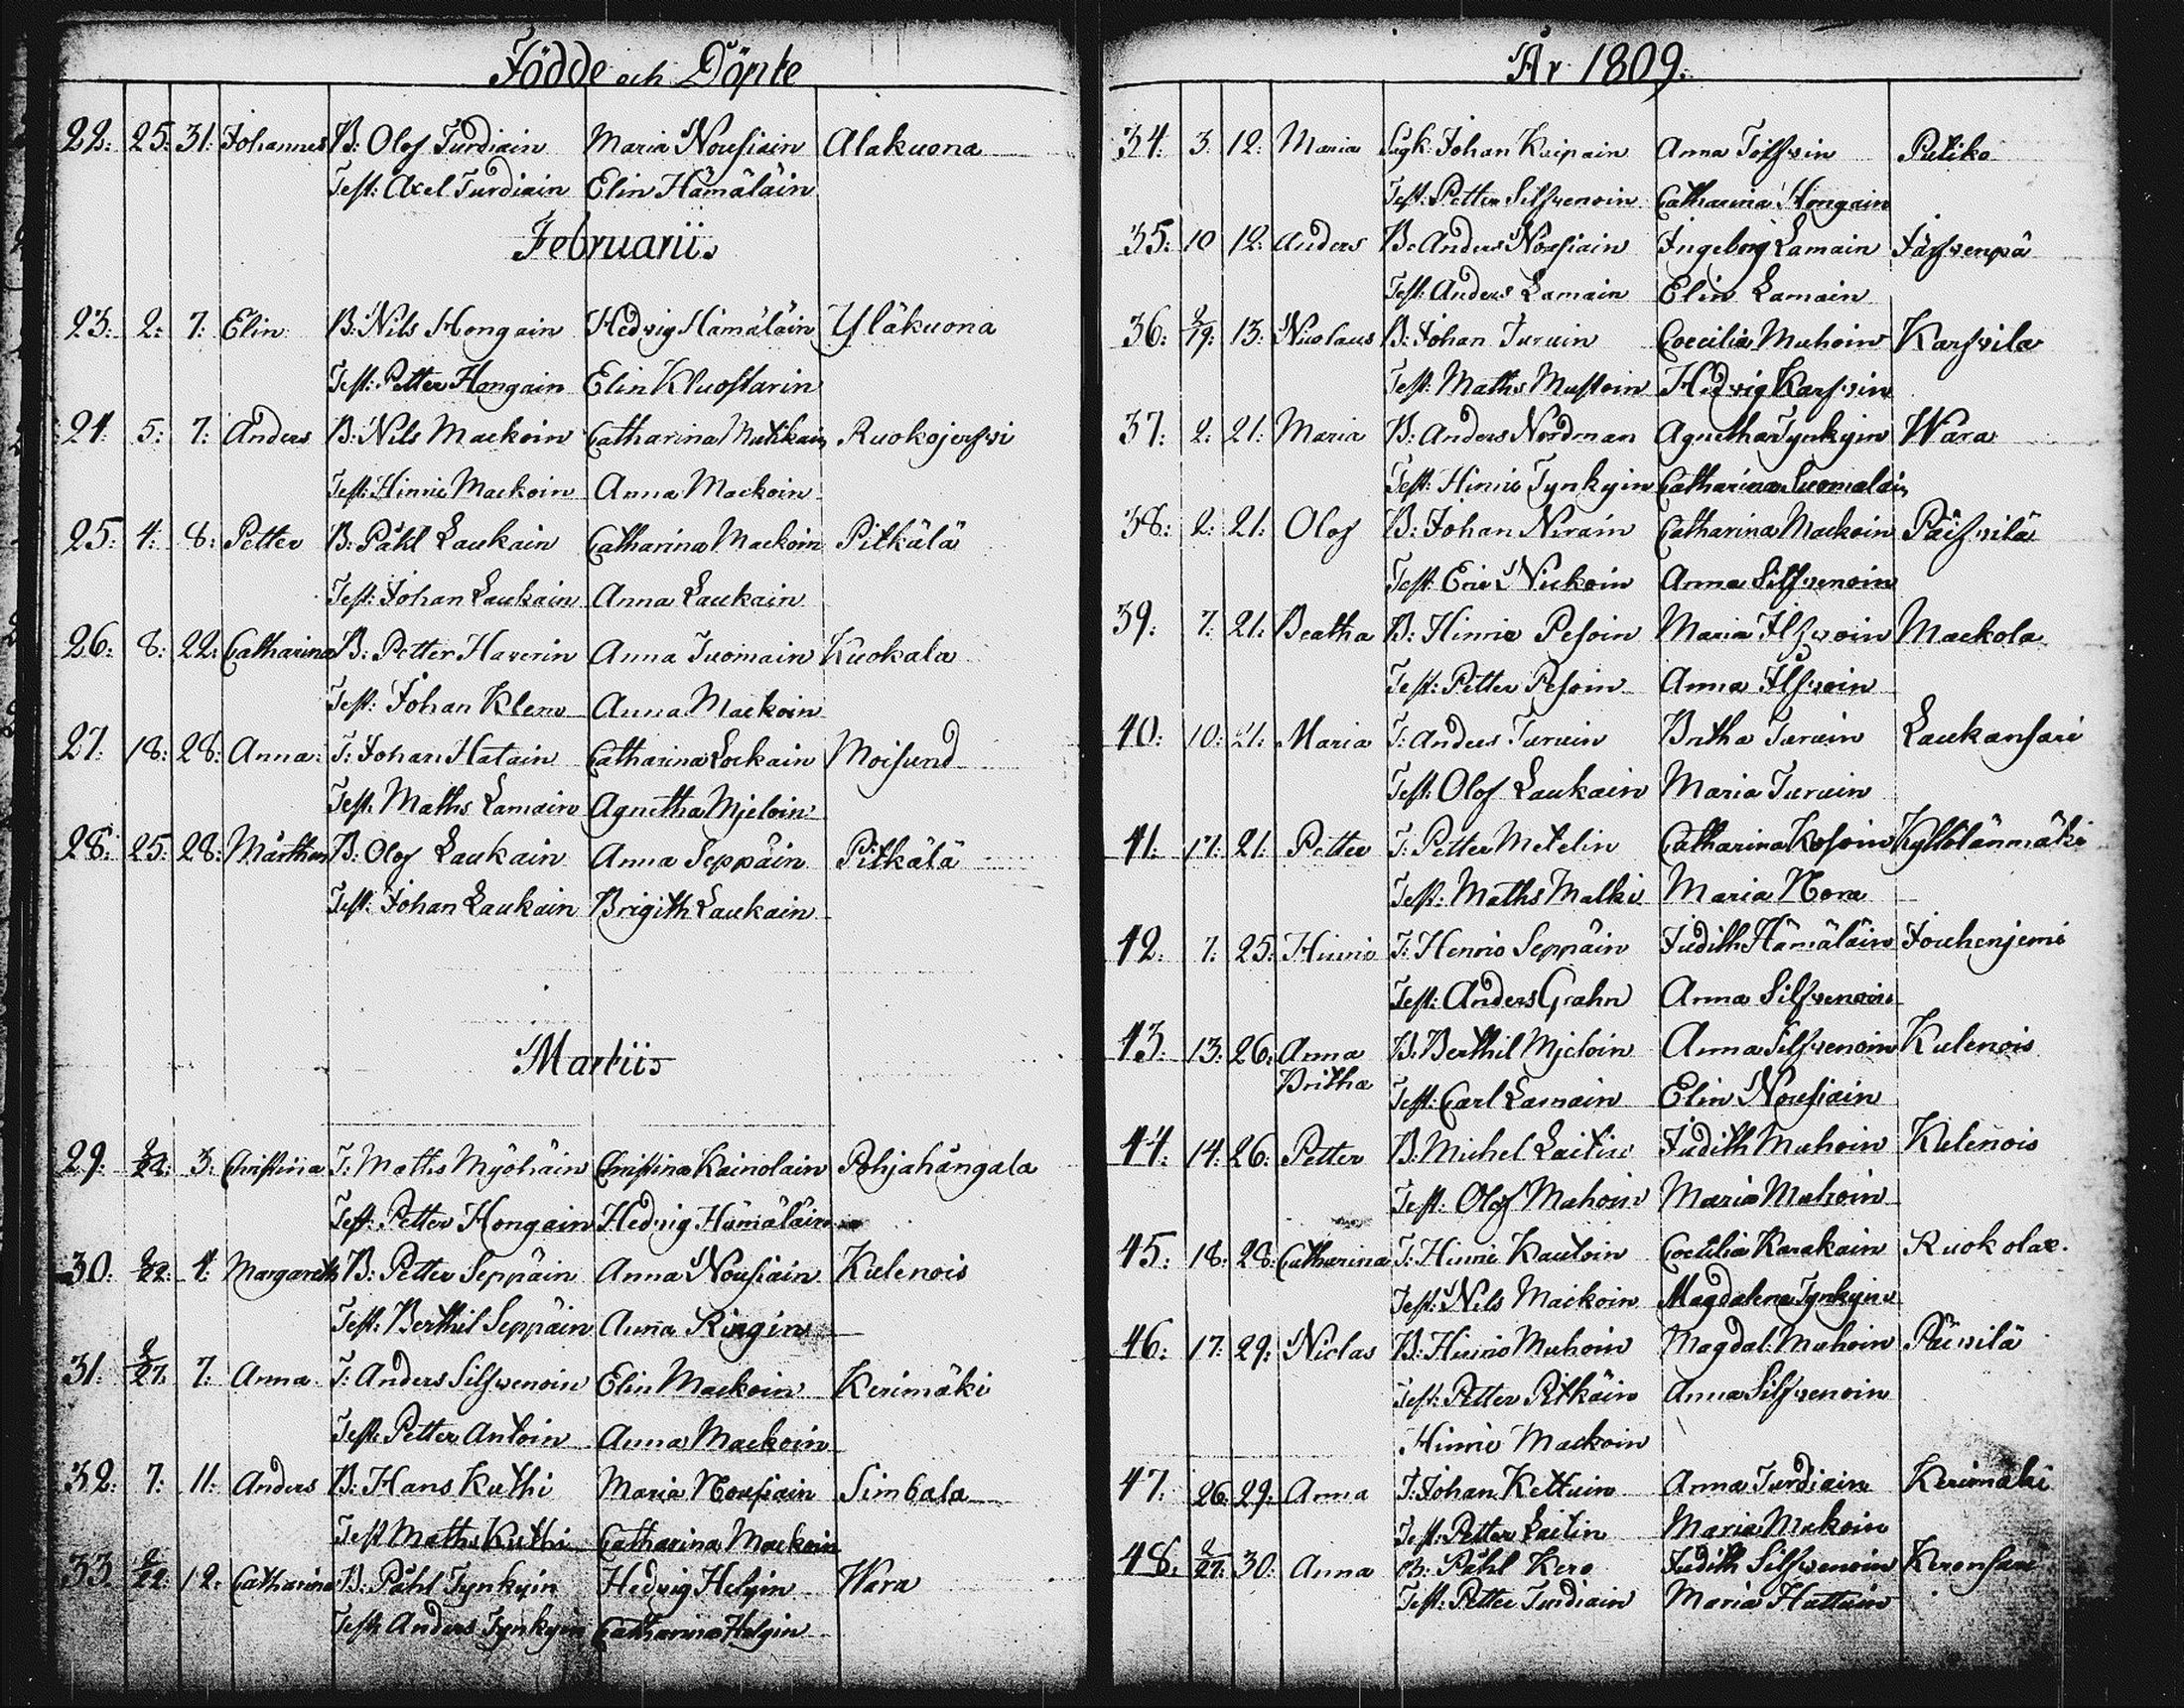 Födde och Döpte
22: 25: 31: Johannes B: Olof Turdiain Maria Nousiain Alakuona
Test: Axel Turdiain Elin Hämäläin
Februarii
23: 2: 7: Elin B: Nils Hongain Hedvig Hämäläin Yläkuona
Test: Petter Hongain Elin Kluostarin
24: 5: 7: Anders B: Nils Mackoin Catharina Mutikain Ruokojerfvi
Test: Hinric Mackoin Anna Mackoin
25: 4: 8: Petter B: Påhl Laukain Catharina Mackoin Pitkälä
Test: Johan Laukain Anna Laukain
26: 8: 22: Catharina B: Petter Haverin Anna Tuomain Kuokala
Test: Johan Klem Anna Mackoin
27: 18: 28: Anna: T: Johan Hatain Catharina Lockain Moisund
Test: Maths Lamain Agnetha Mjeloin
28: 25: 28: Marthen B: Olof Laukain Anna Seppäin Pitkälä
Test: Johan Laukain Brigith Laukain
Martii
29: 2/22: 3: Christina T: Maths Myöhäin Christina Kainolain Pohjahångala
Test: Petter Hongain Hedvig Hämäläin
30: 2/22: 4: Margareth B: Petter Seppäin Anna Nousiain Kulenois
Test: Berthil Seppäin Anna Ringin
31: 2/27: 7: Anna T: Anders Silfvenoin Elin Mackoin Kerimäki
Test: Petter Antoin Anna Mackoin
32: 7: 11: Anders B: Hans Kuthi Maria Nousiain Simbala
Test Maths Kuthi Catharina Mackoin
33: 2/22: 12: Catharina B: Påhl Tynkyin Hedvig Helgin Wara
Test: Anders Tynkyin Catharina Helgin
År 1809.
34: 3: 12: Maria Johan Kaipain Anna Putiko
Test: Petter Silfvenoin Catharina Hongain
35: 10 12: Anders B: Anders Nousiain Ingeborg Lamain Järfvenpä
Test: Anders Lamain Elin Lamain
36: 2/19: 13: Nicolaus B: Johan Turuin Coecilia Muhoin Karfvila
Test: Maths Mustoin Hedvig Karfvin
37: 2: 21: Maria B: Anders Nordman Agnetha Tynkyin Wara
Test: Hinric Tynkyin Catharina Suomalain
38: 2: 21: Olof B: Johan Nirain Catharina Mackoin Päifvilä
Test: Eric Nickoin Anna Silfvenoin
39: 7: 21: Beatha B: Hinric Pesoin Maria Ilfvoin Mackola
Test: Petter Pesoin Anna Ilfvoin
40: 10: 21: Maria T: Anders Turuin Britha Turuin Laukansari
Test: Olof Laukain Maria Turuin
41: 17: 21: Petter T: Petter Metelin Catharina Kosoin Kyllölänmäki
Test: Maths Malki Maria Nora
42: 7: 25: Hinric T: Henric Seppäin Judith Hämäläin Jouhenjemi
Test: Anders Grahn Anna Silfvenoin
43: 13: 26: Anna B: Berthil Mjeloin Anna Silfvenoin Kulenois
Britha Test: Carl Lamain Elin Nousiain
44: 14: 26: Petter B: Michel Laitin Judith Muhoin Kulenois
Test: Olof Mahoin Maria Muhoin
45: 18: 28: Catharina T: Hinric Kautoin Coecilia Karakain Ruokolax.
Test: Nils Mackoin Magdalena Tynkyin
46: 17: 29: Niclas B: Hinric Muhoin Magdal: Muhoin Päivilä
Test: Petter Pitkäin Anna Silfvenoin
Hinric Mackoin
47: 26: 29: Anna T: Johan Kettuin Anna Turdiain Kerimäki
Test: Petter Laitin Maria Mukoin
48: 2/27: 30: Anna B: Påhl Kero Judith Silfvenoin Keronsari
Test: Petter Turdiain Maria Hattuin